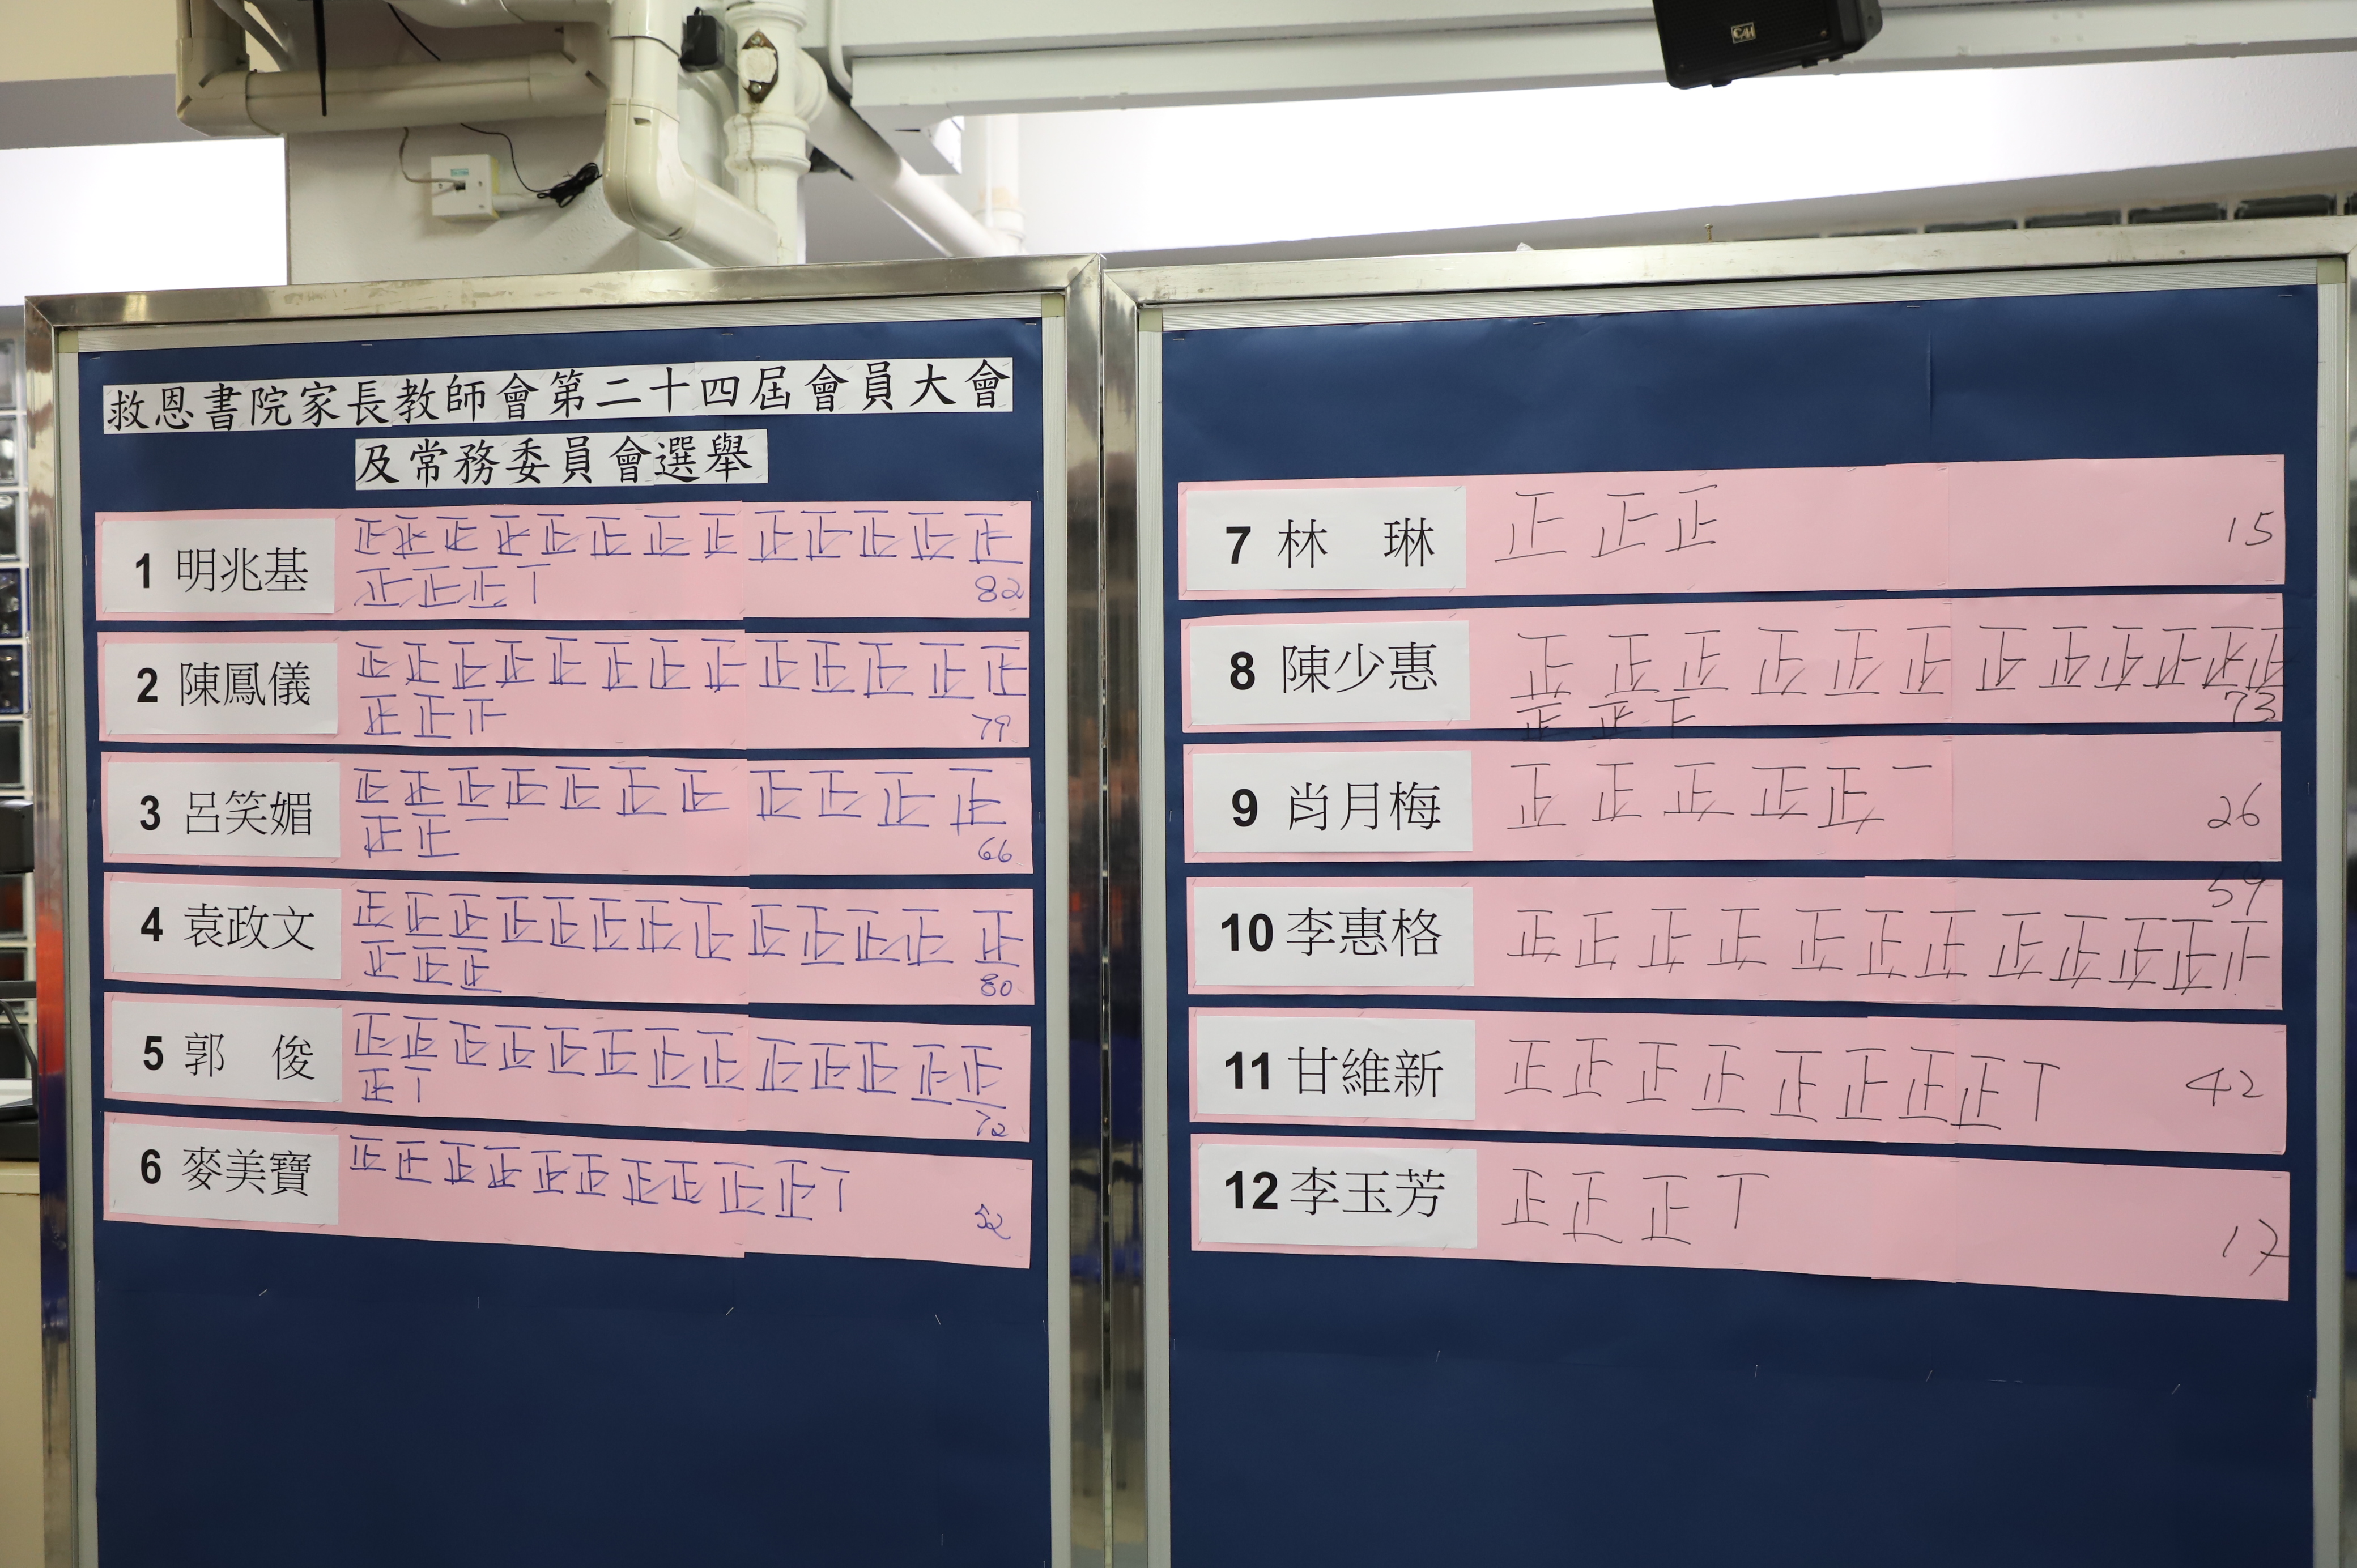 CM
救恩書院家長教師會第二十四屆會員大會
及常務委員會選舉
1 明兆基 正正正正正正正正正正正正正
正正正丅 82
2 陳鳳儀 正正正正正正正正正正正正正
正正止 79
3 呂笑媚 正正正正正正正正正正正
正正一 66
4 袁政文 正正正正正正正正正正正正正
正正正 80
5 郭 俊 正正正正正正正正正正正正正
正丅 72
6 麥美寶 正正正正正正正正正正丅 52
7 林 琳 正正正 15
8 陳少惠 正正正正正正正正正正正正
正正下 73
9 肖月梅 正正正正正一 26
10 李惠格 正正正正正正正正正正正止 59
11 甘維新 正正正正正正正正丅 42
12 李玉芳 正正正丅 17